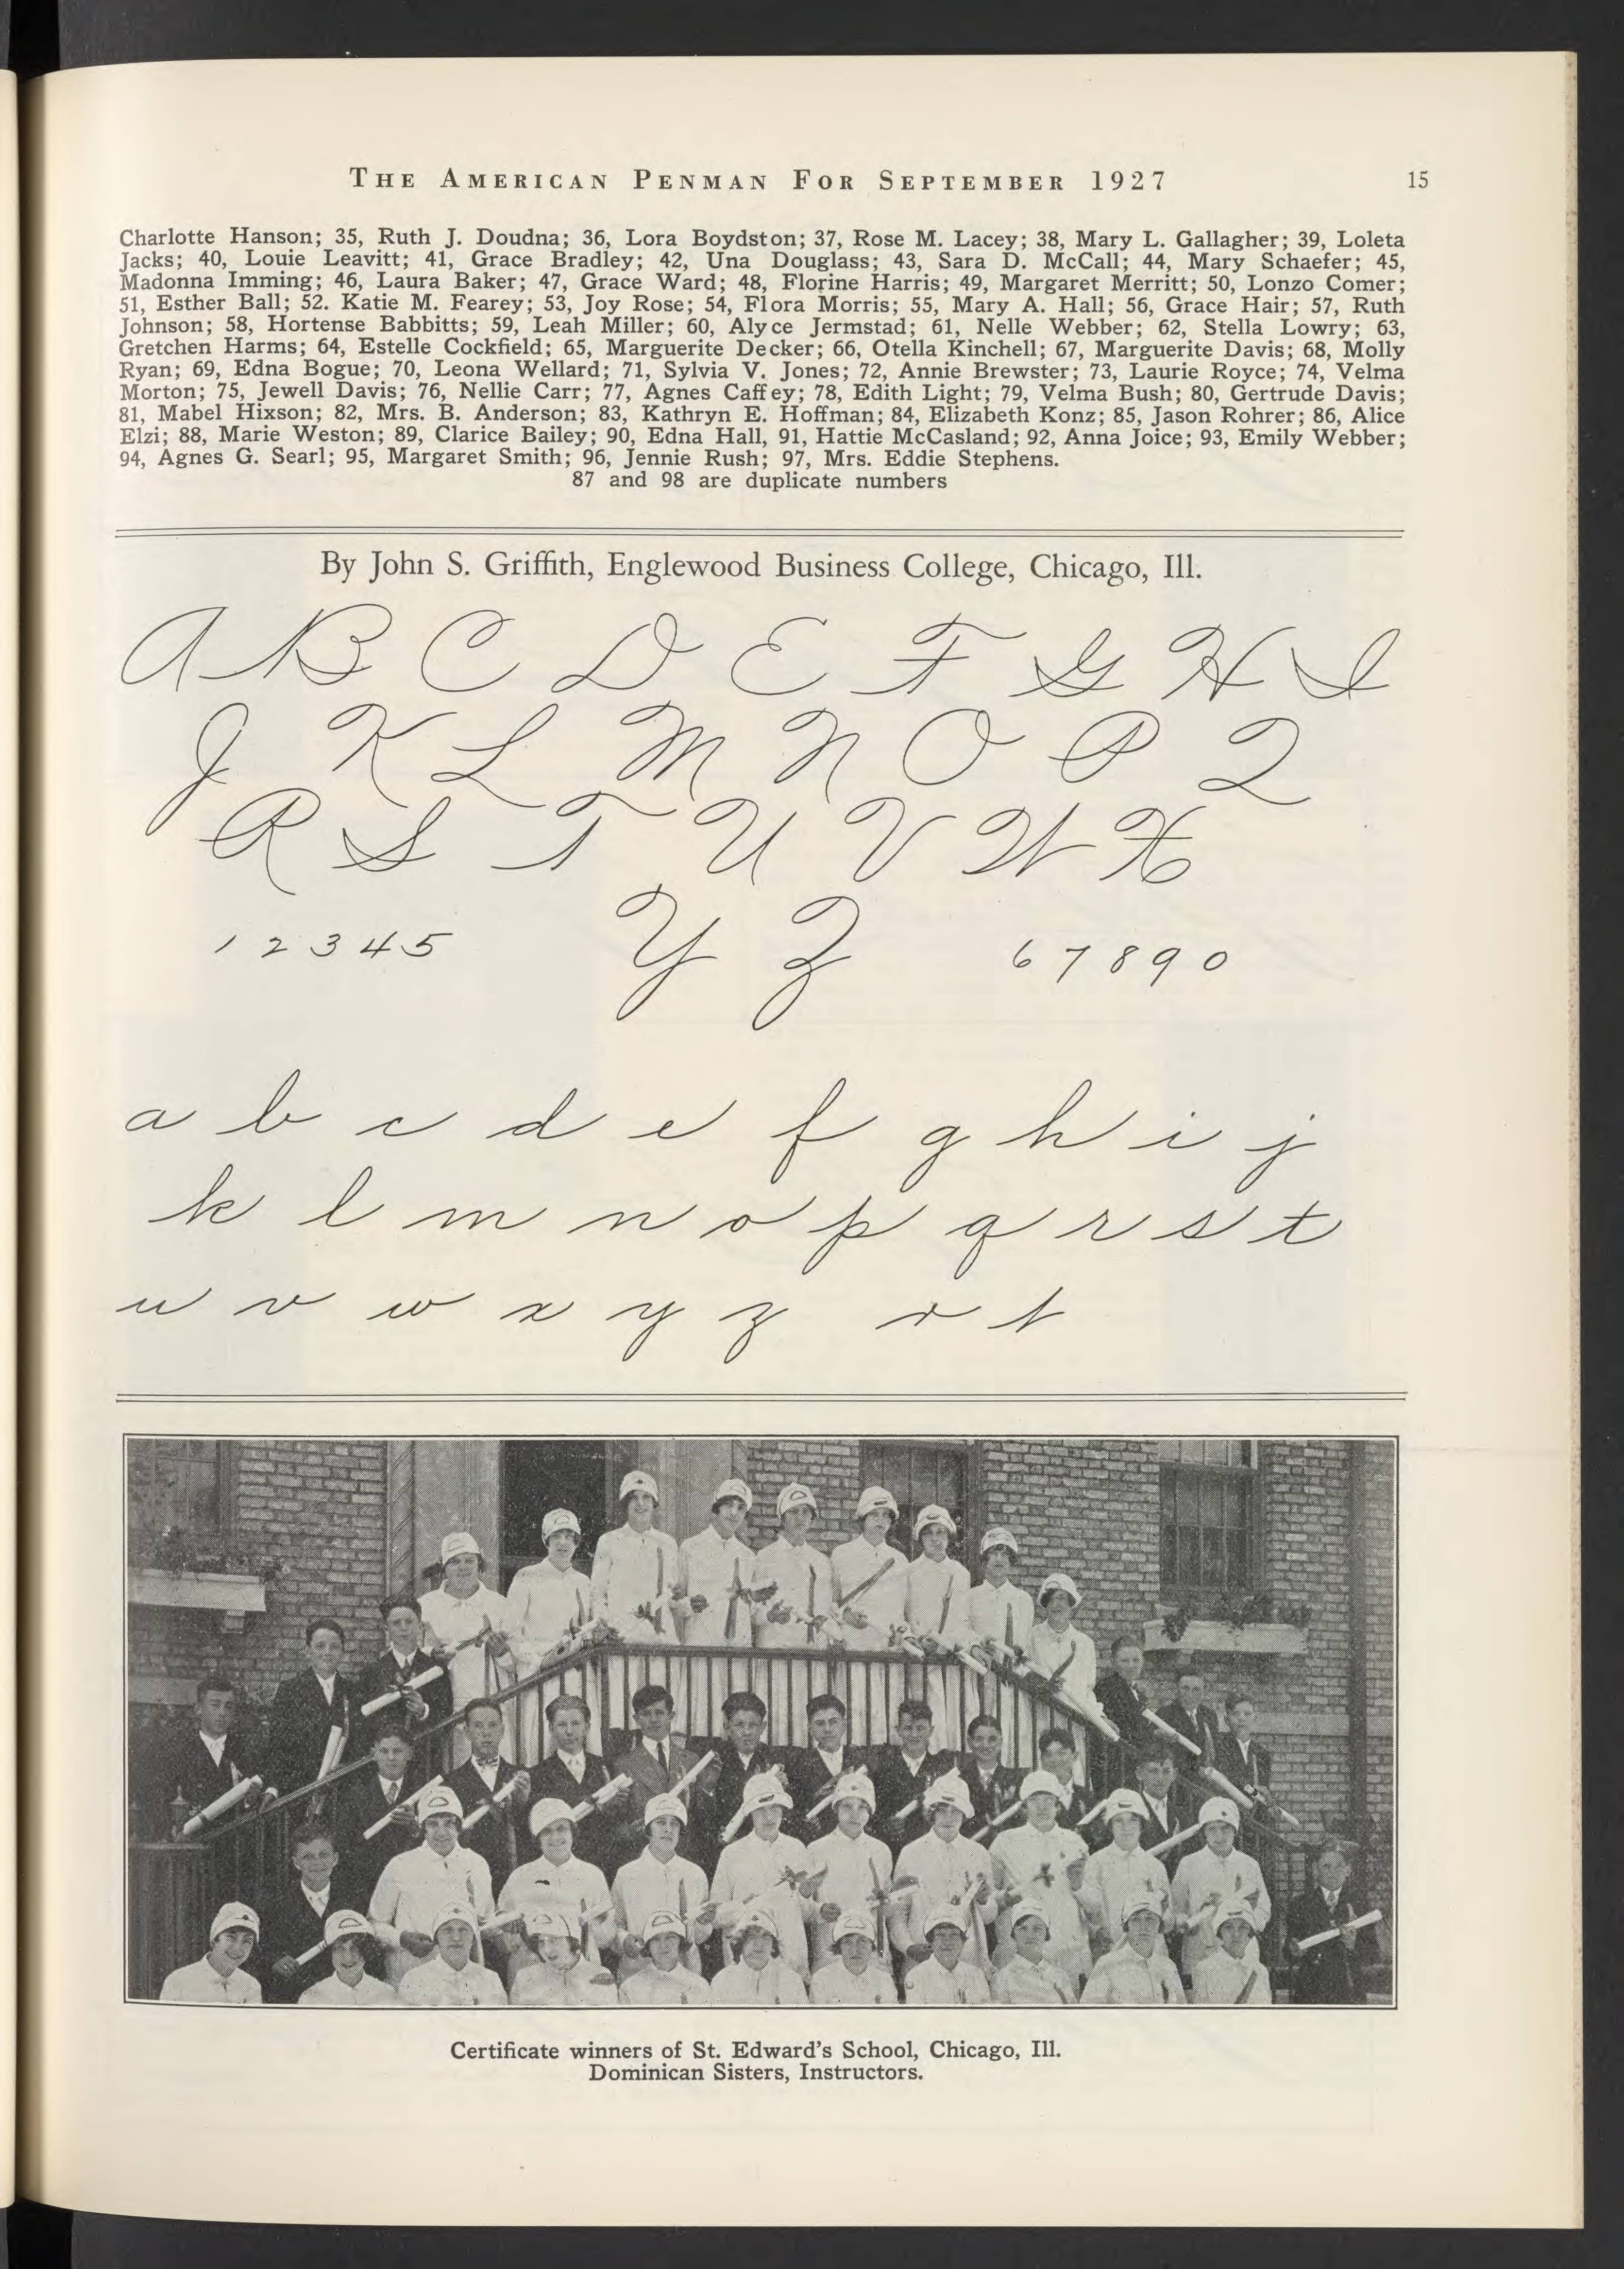 THE AMERICAN PENMAN FOR SEPTEMBER 1927 15
Charlotte Hanson; 35, Ruth J. Doudna; 36, Lora Boydston; 37, Rose M. Lacey; 38, Mary L. Gallagher; 39, Loleta
Jacks; 40, Louie Leavitt; 41, Grace Bradley; 42, Una Douglass; 43, Sara D. McCall; 44, Mary Schaefer; 45,
Madonna Imming; 46, Laura Baker; 47, Grace Ward; 48, Florine Harris; 49, Margaret Merritt; 50, Lonzo Comer;
51, Esther Ball; 52. Katie M. Fearey; 53, Joy Rose; 54, Flora Morris; 55, Mary A. Hall; 56, Grace Hair; 57, Ruth
Johnson; 58, Hortense Babbitts; 59, Leah Miller; 60, Alyce Jermstad; 61, Nelle Webber; 62, Stella Lowry; 63,
Gretchen Harms; 64, Estelle Cockfield; 65, Marguerite Decker; 66, Otella Kinchell; 67, Marguerite Davis; 68, Molly
Ryan; 69, Edna Bogue; 70, Leona Wellard; 71, Sylvia V. Jones; 72, Annie Brewster; 73, Laurie Royce; 74, Velma
Morton; 75, Jewell Davis; 76, Nellie Carr; 77, Agnes Caffey; 78, Edith Light; 79, Velma Bush; 80, Gertrude Davis;
81, Mabel Hixson; 82, Mrs. B. Anderson; 83, Kathryn E. Hoffman; 84, Elizabeth Konz; 85, Jason Rohrer; 86, Alice
Elzi; 88, Marie Weston; 89, Clarice Bailey; 90, Edna Hall, 91, Hattie McCasland; 92, Anna Joice; 93, Emily Webber;
94, Agnes G. Searl; 95, Margaret Smith; 96, Jennie Rush; 97, Mrs. Eddie Stephens.
87 and 98 are duplicate numbers
By John S. Griffith, Englewood Business College, Chicago, Ill.
A B C D E F G H I
J K L M N O P Q
R S T U V W X
1 2 3 4 5 Y Z 6 7 8 9 0
a b c d e f g h i j
k l m n o p q r s t
u v w x y z r t
Certificate winners of St. Edward's School, Chicago, Ill.
Dominican Sisters, Instructors.